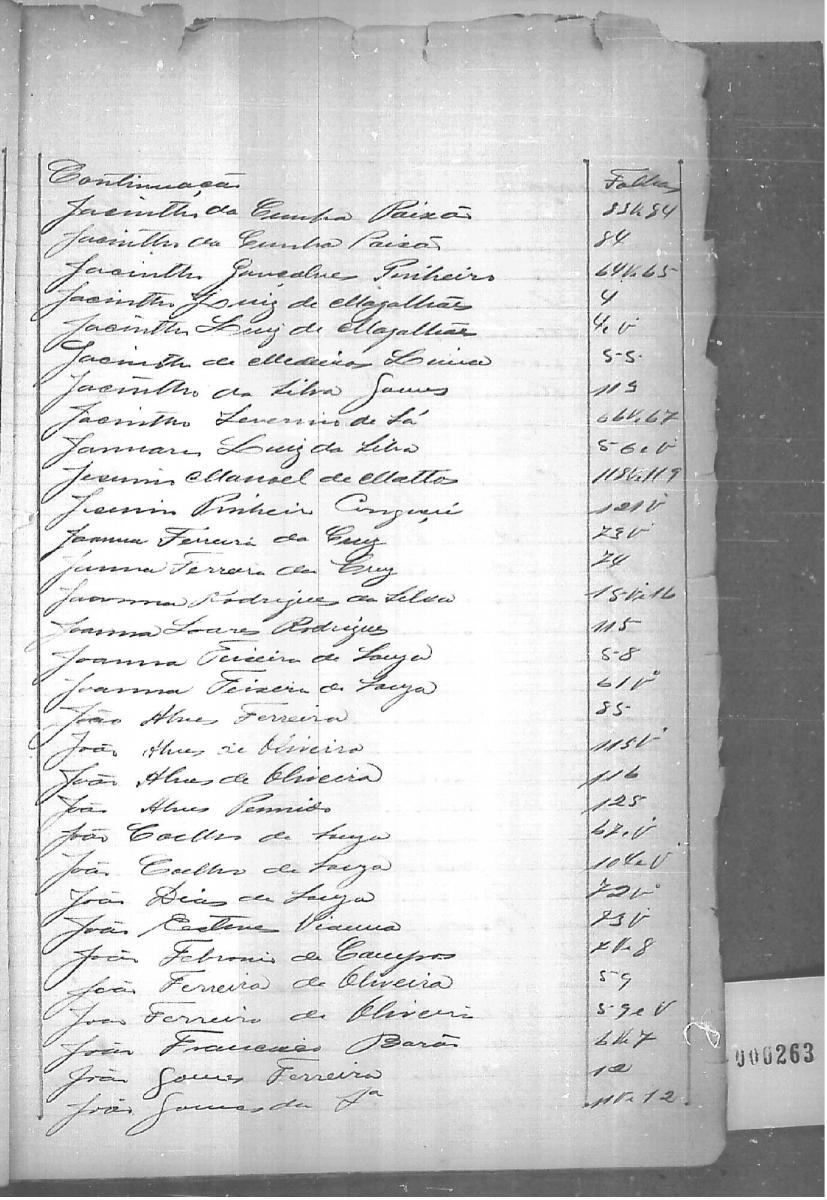 Continuação Folhas
Jacintho da Cunha Paixão 83V.84
Jacintho da Cunha Paixão 84
Jacintho Gonçalves Pinheiro 64V.65
Jacintho Luiz de Magalhães 4
Jacintho Luiz de Magalhães 4.V
Jacintho de Medeiros Lima 55
Jacintho da Silva Gomes 113
Jacintho Severino de Sá 66V.67
Januario Luiz da Silva 56eV
Jesuino Manoel de Mattos 118V.119
Jesuino Pinheiro 121V
Joanna Ferreira da Cruz 73V
Joanna Ferreira da Cruz 74
Joanna Rodrigues da Silva 15V.16
Joanna Soares Rodrigues 115
Joanna Teixeira de Souza 58
Joanna Teixeira de Souza 61V
João Alves Ferreira 85
João Alves de Oliveira 115V
João Alves de Oliveira 116
João Alves Pennido 125
João Coelho de Souza 67.V
João Coelho de Souza 104eV
João Dias de Souza 72V
João Esteves Vianna 73V
João Febronio de Campos 7V.8
João Ferreira de Oliveira 59
João Ferreira de Oliveira 59eV
João Francisco Barão 6V.7
João Gomes Ferreira 12
João Gomes da Fª 11V.12
000263